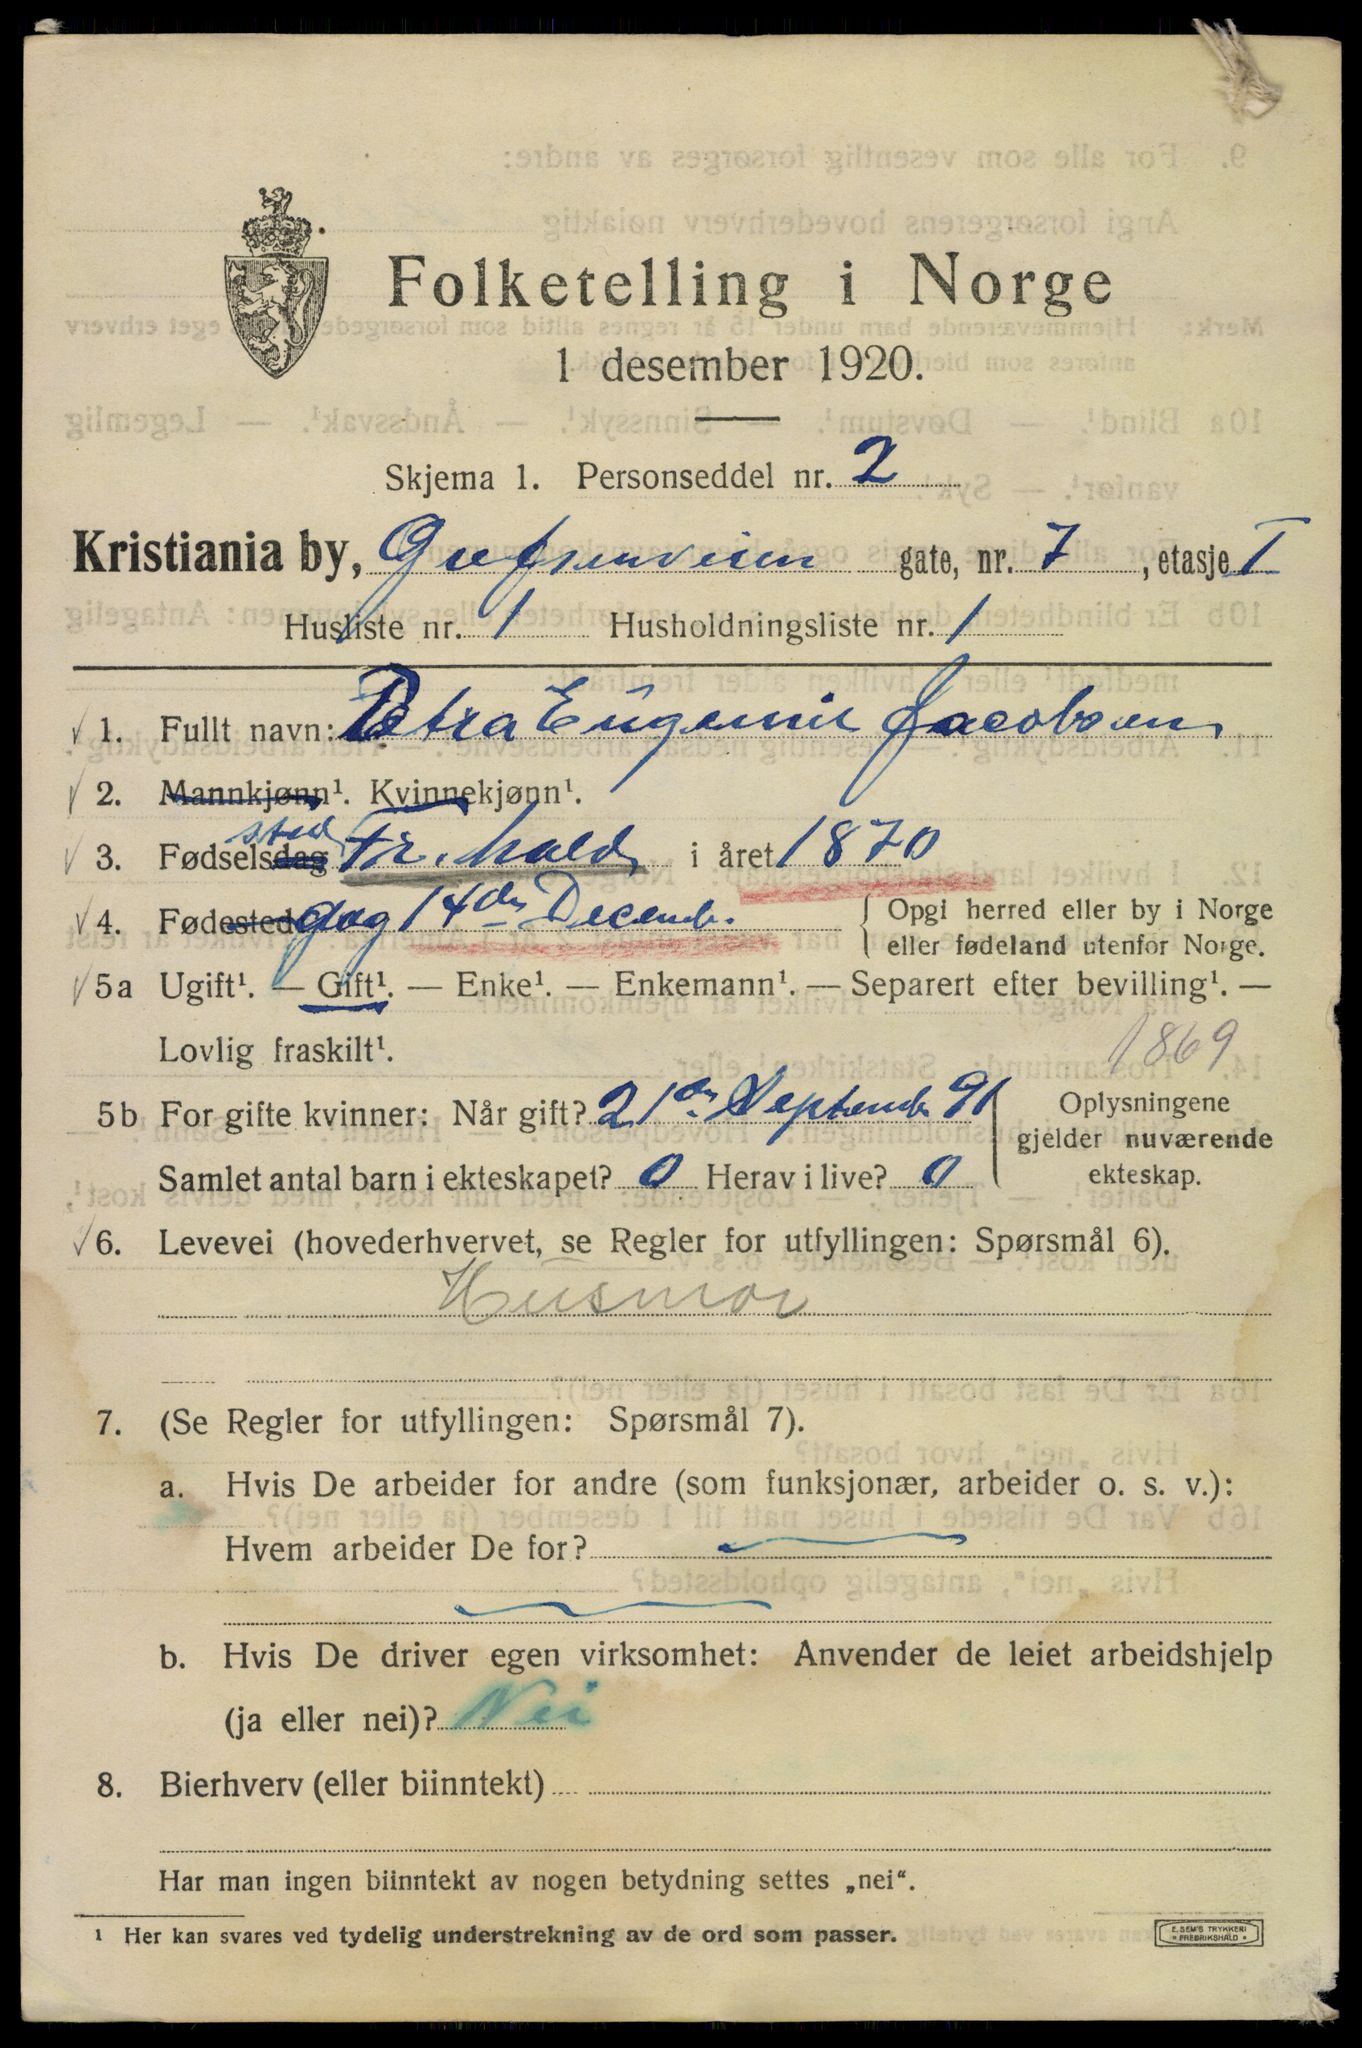 Folketelling i Norge
1 desember 1920.
Skjema 1. Personseddel nr. 2
Kristiania by, Grefsenveien gate, nr. 7, etasje I
Husliste nr. 1 Husholdningsliste nr. 1
1. Fullt navn: Petra Eugenie Jacobsen
2. Mannkjønn¹. Kvinnekjønn¹.
sted
3. Fødselsdag Fr.hald i året 1870
4. Fødested dag 14de Decemb. { Opgi herred eller by i Norge
eller fødeland utenfor Norge.
5a Ugift¹. — Gift¹. — Enke¹. — Enkemann¹. — Separert efter bevilling¹. —
Lovlig fraskilt¹. 1869
5b For gifte kvinner: Når gift? 21de Septemb. 91
Samlet antal barn i ekteskapet? 0 Herav i live? 0
Oplysningene
gjelder nuværende
ekteskap.
6. Levevei (hovederhvervet, se Regler for utfyllingen: Spørsmål 6).
Husmor
7. (Se Regler for utfyllingen: Spørsmål 7).
a. Hvis De arbeider for andre (som funksjonær, arbeider o. s. v.):
Hvem arbeider De for?
b. Hvis De driver egen virksomhet: Anvender de leiet arbeidshjelp
(ja eller nei)? Nei
8. Bierhverv (eller biinntekt)
Har man ingen biinntekt av nogen betydning settes „nei“.
¹ Her kan svares ved tydelig understrekning av de ord som passer.
E. SEM'S TRYKKERI
FREDRIKSHALD